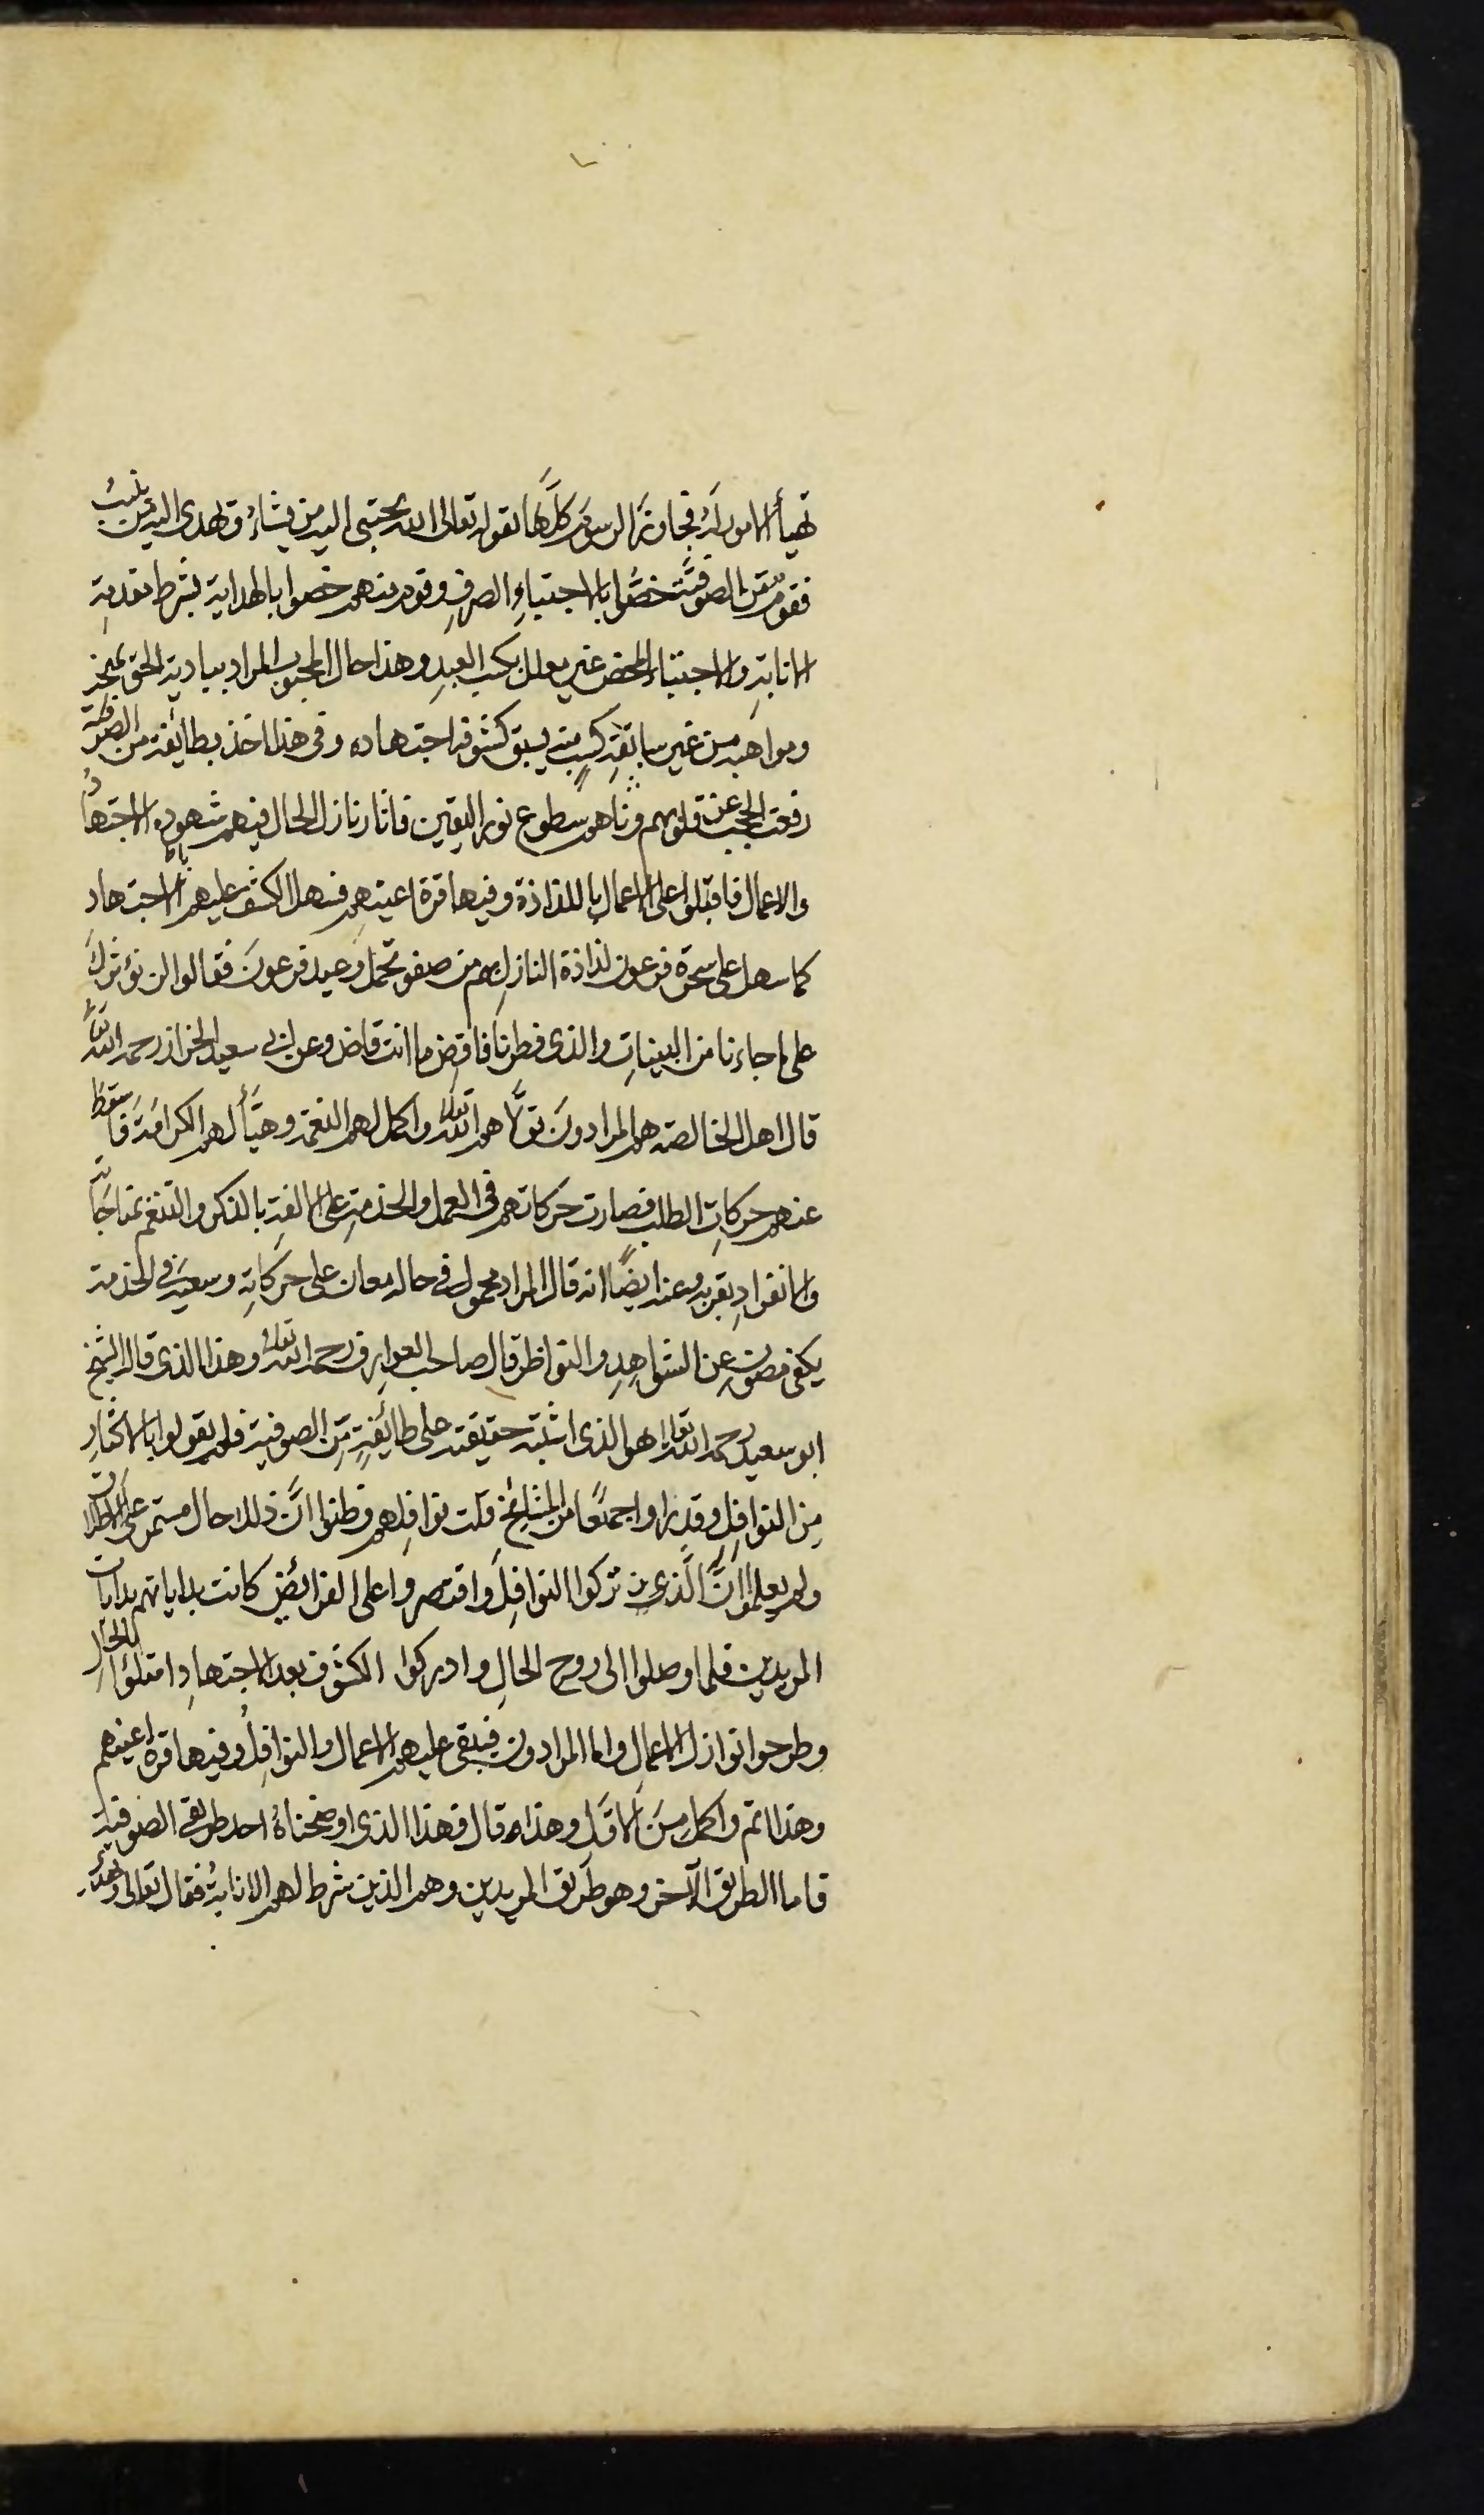 تهيأ الامور لَهُ فجاوز الرسوم كلَّها لقوله تعالى الله يجتبى اليه من يشاءُ ويهدى اليه من ينيبُ
فقومٌ من الصوفيّة خصُّوا بالاجتباءِ الصرفِ وقوم منهم خصوا بالهداية بشرط مقدمةِ
الانابةِ والاجتباء المحض غير معلل بكسب العبدِ وهذا حال المحبوب المراد يباديه الحق بمنحه
ومواهبه من غير سابقةِ كسبٍ منه يسبق كشوفه اجتهاده وفى هذا اخذ بطائفة من الصوفية
رفعت الحجب عن قلوبهم وبادهم سطوع نور اليقين فاثار نازل الحال فيهم شهوة الاجتهاد
والاعمال فاقبلوا على الاعمال باللذاذة وفيها قرة اعينهم فسهل الكشف عليهم الاجتهادِ
كما سهل على سحرة فرعون لذاذة النازلِ بهم من صفو تحمل وعيد فرعونَ فقالوا لن نؤثركَ
على ما جاءنا من البيناتِ والذى فطرنا فاقضِ ما انت قاض وعن ابى سعيد الخراز رحمه الله تعالى
قال اهل الخالصة هم المرادونَ تولّاهم الله تعالى واكمل لهم النعمة وهيّأ لهم الكرامة فاسقط
عنهم حركاتِ الطلب فصارت حركاتهم فى العمل والخدمةِ على الالفةِ بالذكر والتنعم بمناجاته
والانفرادِ بقربه وعنه ايضًا انه قال المراد محمول فى حاله معان على حركاتِهِ وسعيه فى الخدمة
يكفى مصون عن الشواهِدِ والنواظر قال صاحب العوارف رحمه الله تعالى وهذا الذى قاله الشيخ
ابو سعيد رحمه الله تعالى هو الذى اشتبه حقيقته على طائفةٍ من الصوفية فلم يقولوا بالاكثارِ
مِن النوافِلِ وقد راوا جمعًا من المشائخ قلت نوافلهم فظنوا انَّ ذلك حال مستمر على الاطلاق
ولم يعلموا انَّ الَّذين تركوا النوافِلَ واقتصروا على الفرائضِ كانت بداياتهم بدايات
المريدين فلما وصلوا الى روح الحالِ وادركوا الكشوف بعد الاجتهادِ امتلؤا بالحالِ
وطرحوا نوازل الاعمالِ واما المرادون فيبقى عليهم الاعمال والنوافِلُ وفيها قرة اعينهم
وهذا اتم واكمل مِنَ الاوّل وهذا قال فهذا الذى اوضحناهُ احد طريقى الصوفيّة
فاما الطريق الآخر وهو طريق المريدين وهم الذين شرط لهم الانابةُ فقال تعالى ويهدى